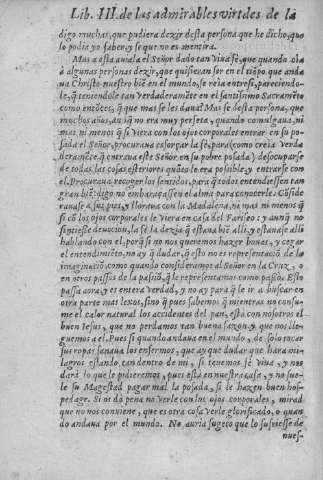 Lib. III. de las admirables virtdes de la
digo muchas, que pudiera dezir desta persona que he dicho, que
lo podia yo saber, y se que no es mentira.
Mas a esta auiala el Señor dado tan viua fè, que quando oia
à algunas personas dezir, que quisieran ser en el tiẽpo que anda
ua Christo nuestro biẽ en el mundo, se reia entre si, pareciendo-
le, q̃ teniendole tan verdaderamẽte en el santissimo Sacramẽto
como entõces, q̃ que mas se les daua? Mas se desta persona, que
muchos años, au q̃ no era muy perfeta, quando comulgaua, ni
mas ni menos q̃ si viera con los ojos corporales entrar en su po-
sada el Señor, procuraua esforçar la fè, para (como creia verda
deramẽte q̃ entraua este Señor en su pobre posada) desocuparse
de todas las cosas esteriores quãto le era possible, y entrarse con
el. Procuraua recoger los sentidos, para q̃ todos entendiessen tan
gran biẽ: digo no embaraçassen al alma para conocerle. Cõside
rauase a sus pies, y lloraua con la Madalena, ni mas ni menos q̃
si cõ los ojos corporales le viera en casa del Fariseo: y aunq̃ no
sintiesse deuocion, la fè la dezia q̃ estaua biẽ alli, y estauase alli
hablando con el, porq̃ si no nos queremos hazer bouas, y cegar
el entendimiẽto, no ay q̃ dudar, q̃ esto no es representaciõ de la
imaginaciõ, como quando consideramos al Señor en la Cruz, o
en otros passos de la passiõ, q̃ le representamos como passò. Esto
passa aora, y es entera verdad, y no ay para q̃ le ir a buscar en
otra parte mas lexos, sino q̃ pues sabemos q̃ mientras no consu-
me el calor natural los accidentes del pan, està con nosotros el
buen Iesus, que no perdamos tan buena sazon, y que nos lle-
guemos a el. Pues si quando andaua en el mundo, de solo tocar
sus ropas sanaua los enfermos, que ay que dudar que hara mi-
lagros estando tan dentro de mi, si tenemos fè viua, y nos
darà lo que le pidieremos, pues està en nuestra casa, y no sue-
le su Magestad pagar mal la posada, si le hazen buen hos-
pedage. Si os dà pena no verle con los ojos corporales, mirad
que no nos conuiene, que es otra cosa verle glorificado, o quan-
do andaua por el mundo. No auria sugeto que lo sufriesse de
nues-